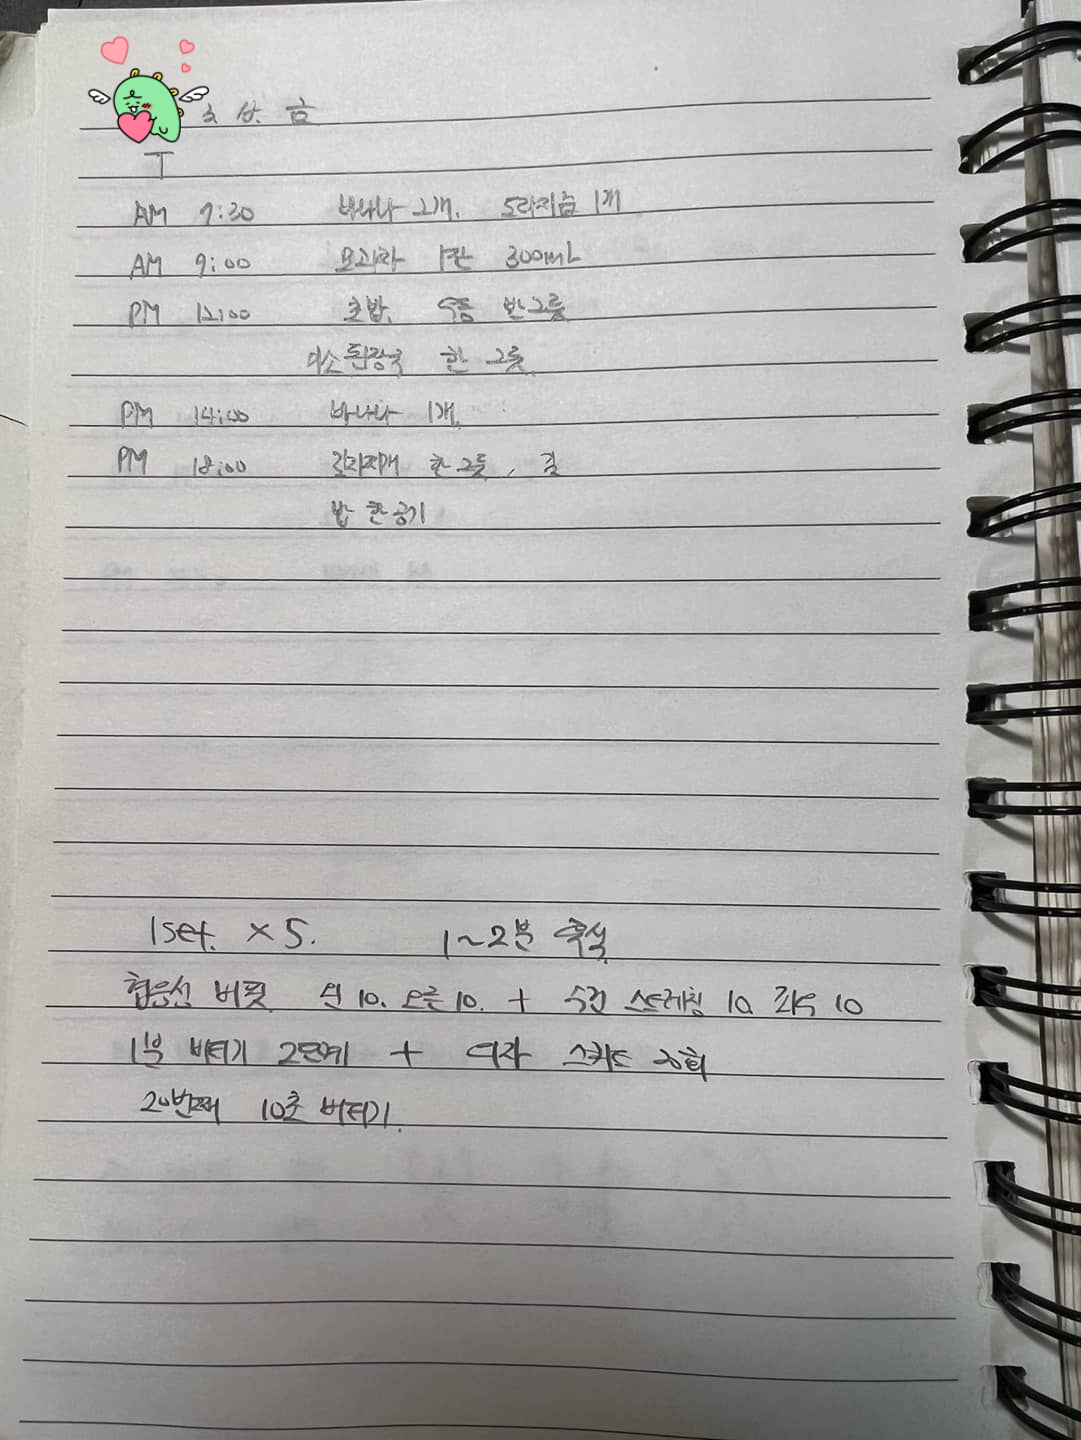 AM 7:30 바나나 2개, 도라지즙 1개
AM 9:00 모과차 1잔 300mL
PM 12:00 초밥, 우동 반그릇
미소된장국 한 그릇
PM 14:00 바나나 1개
PM 18:00 감자찌개 한그릇, 김
밥 한공기
1set. × 5. 1~2분 휴식
런 버핏 왼 10. 오른 10. + 수건 스트레칭 10. 좌우 10
1분 버티기 2단계 + 의자 스쿼트 20회
20번째 10초 버티기.